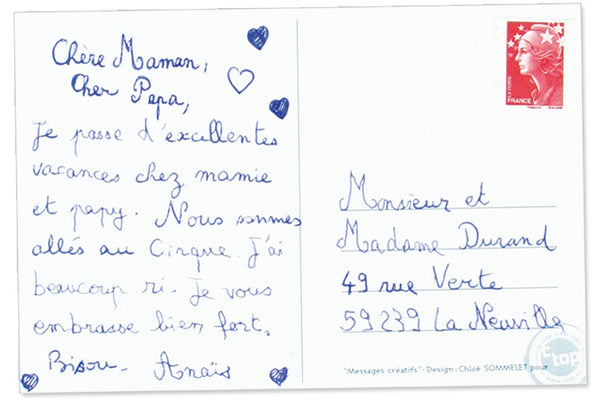 Chère Maman,
Cher Papa,
Je passe d'excellentes
vacances chez mamie
et papy. Nous sommes
allés au Cirque. J'ai
beaucoup ri. Je vous
embrasse bien fort.
Bisou. Anaïs
FRANCE
Monsieur et
Madame Durand
49 rue Verte
59239 La Neuville
"Messages créatifs" - Design : Chloé SOMMELET pour
etap